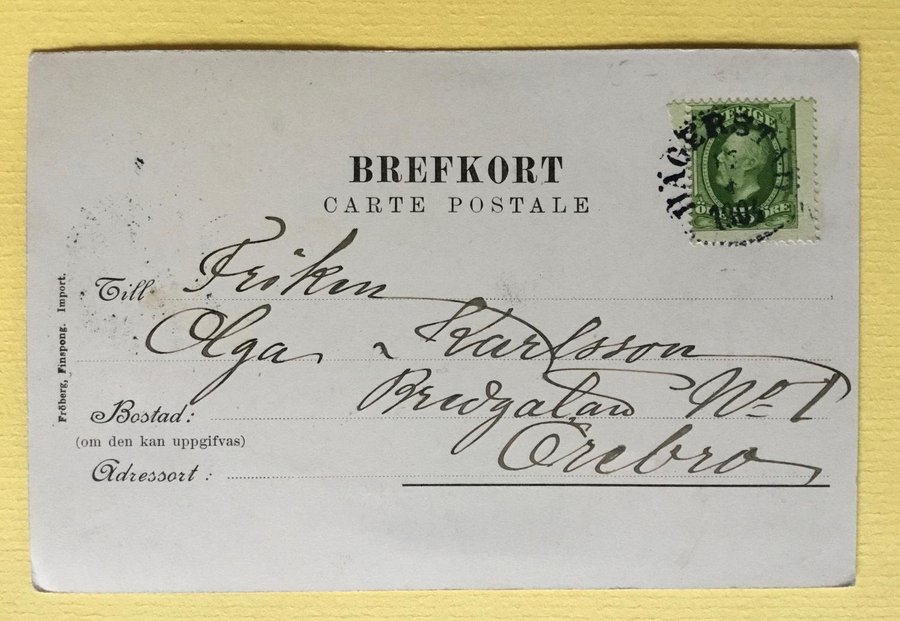 BREFKORT
CARTE POSTALE
SVERIGE
HÄGERSTAD
Till Fröken
Olga Karlsson
Bostad: Bredgatan No 1
(om den kan uppgifvas)
Adressort: Örebro
Fröberg, Finspong. Import.